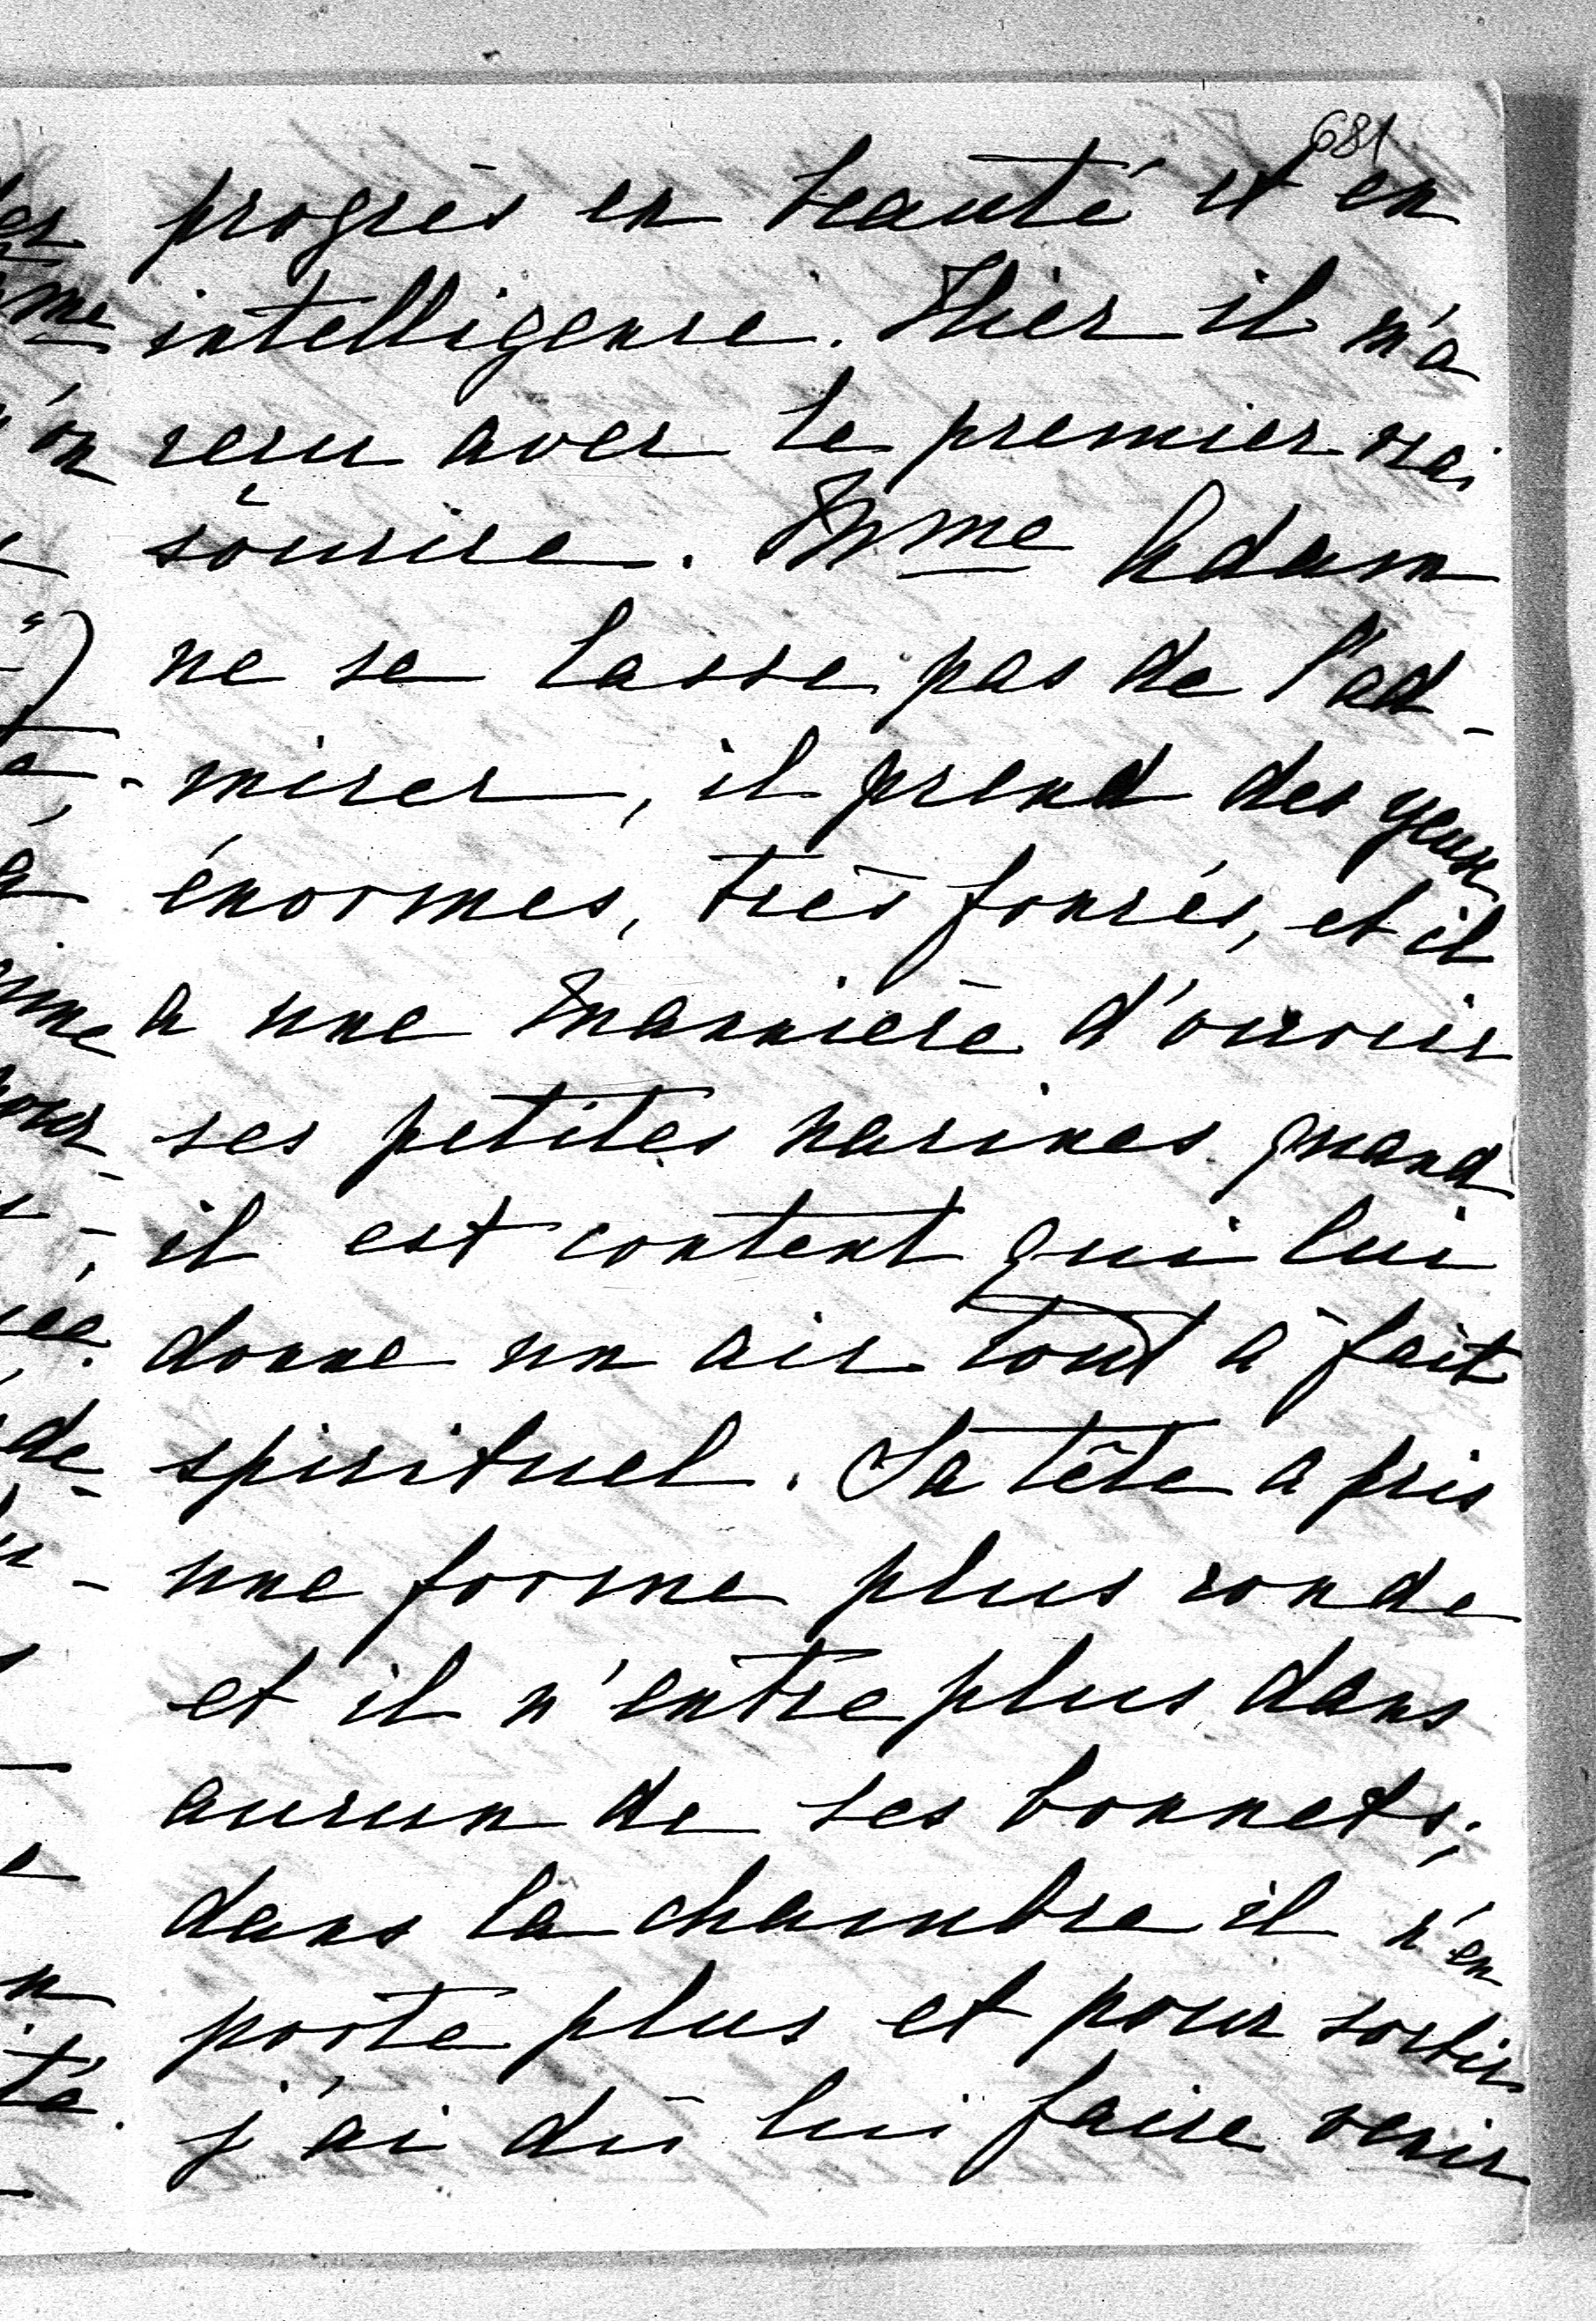 681
progrès en beauté et en
intelligence. Hier il m'a
reçu avec le premier vrai
sourire. Mme Adam
ne se lasse pas de l'ad-
-mirer, il prend des yeux
énormes, très foncés, et il
a une mannière d'ouvrir
ses petites narines quand
il est content qui lui
donne un air tout à fait
spirituel. Sa tête a pris
une forme plus ronde
et il n'entre plus dans
aucun de ses bonnets;
dans la chambre il n'en
porte plus et pour sortir
j'ai dû lui faire venir